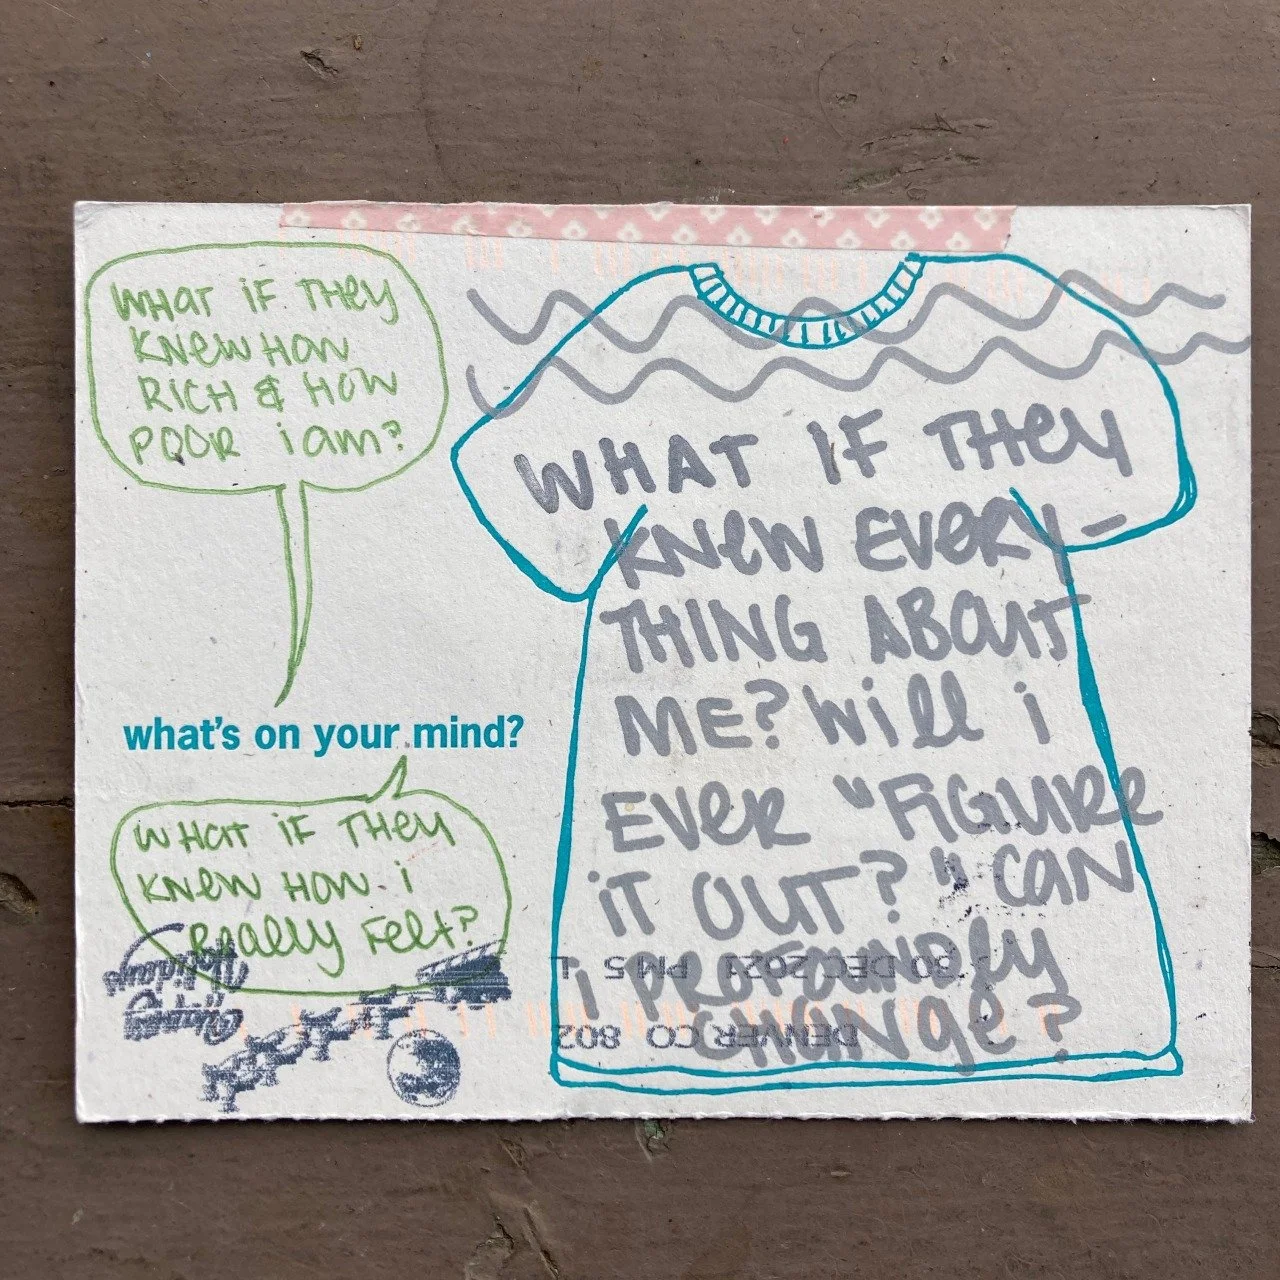 WHAT iF THEy
KNEW HOW
RICH & HOW
POOR i am?
what's on your mind?
WHAT iF THEy
KNEW HOW i
REALLY FELT?
WHAT IF THEY
KNEW EVERY-
THING ABOUT
ME? Will i
EVER "FIGURE
iT OUT?" CAN
i PROFOUNDLY
CHANGE?
DENVER CO 802
30 DEC 2021 PM 5 L
Happy
Holidays